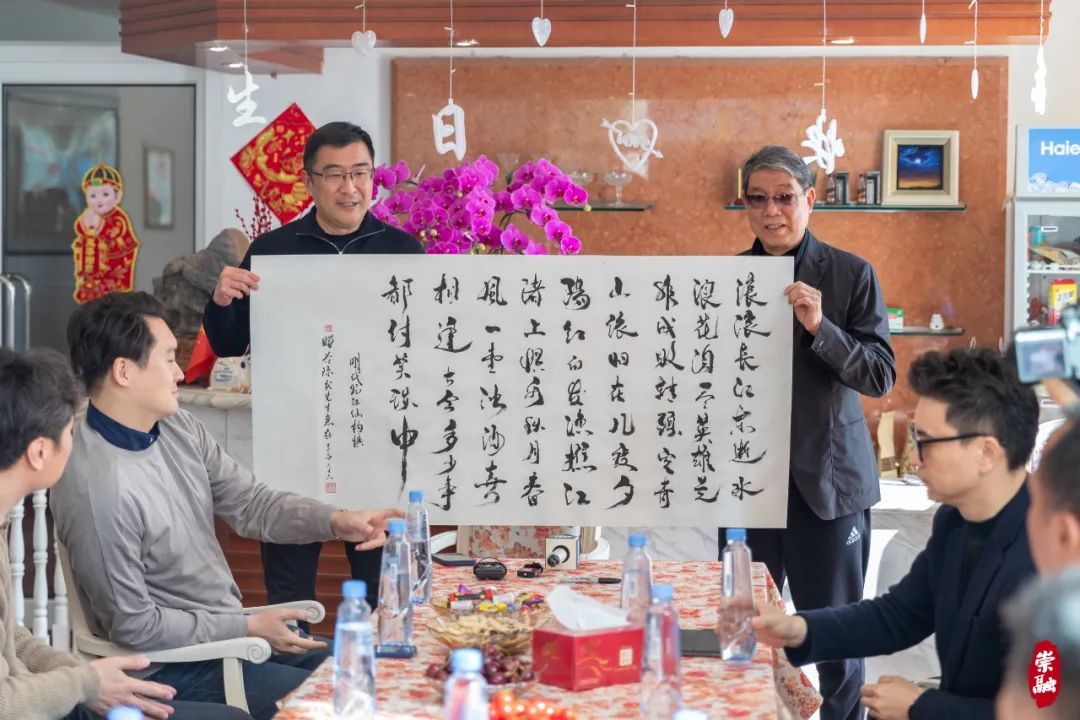 生
日
Haie
滚滚長江东逝水
浪花淘尽英雄是
非成败转頭空青
山依旧在几度夕
陽红白发渔樵江
渚上惯看秋月春
風一壶浊酒喜
相逢古今多少事
都付笑谈中
明代临江仙杨慎
adidas
崇融